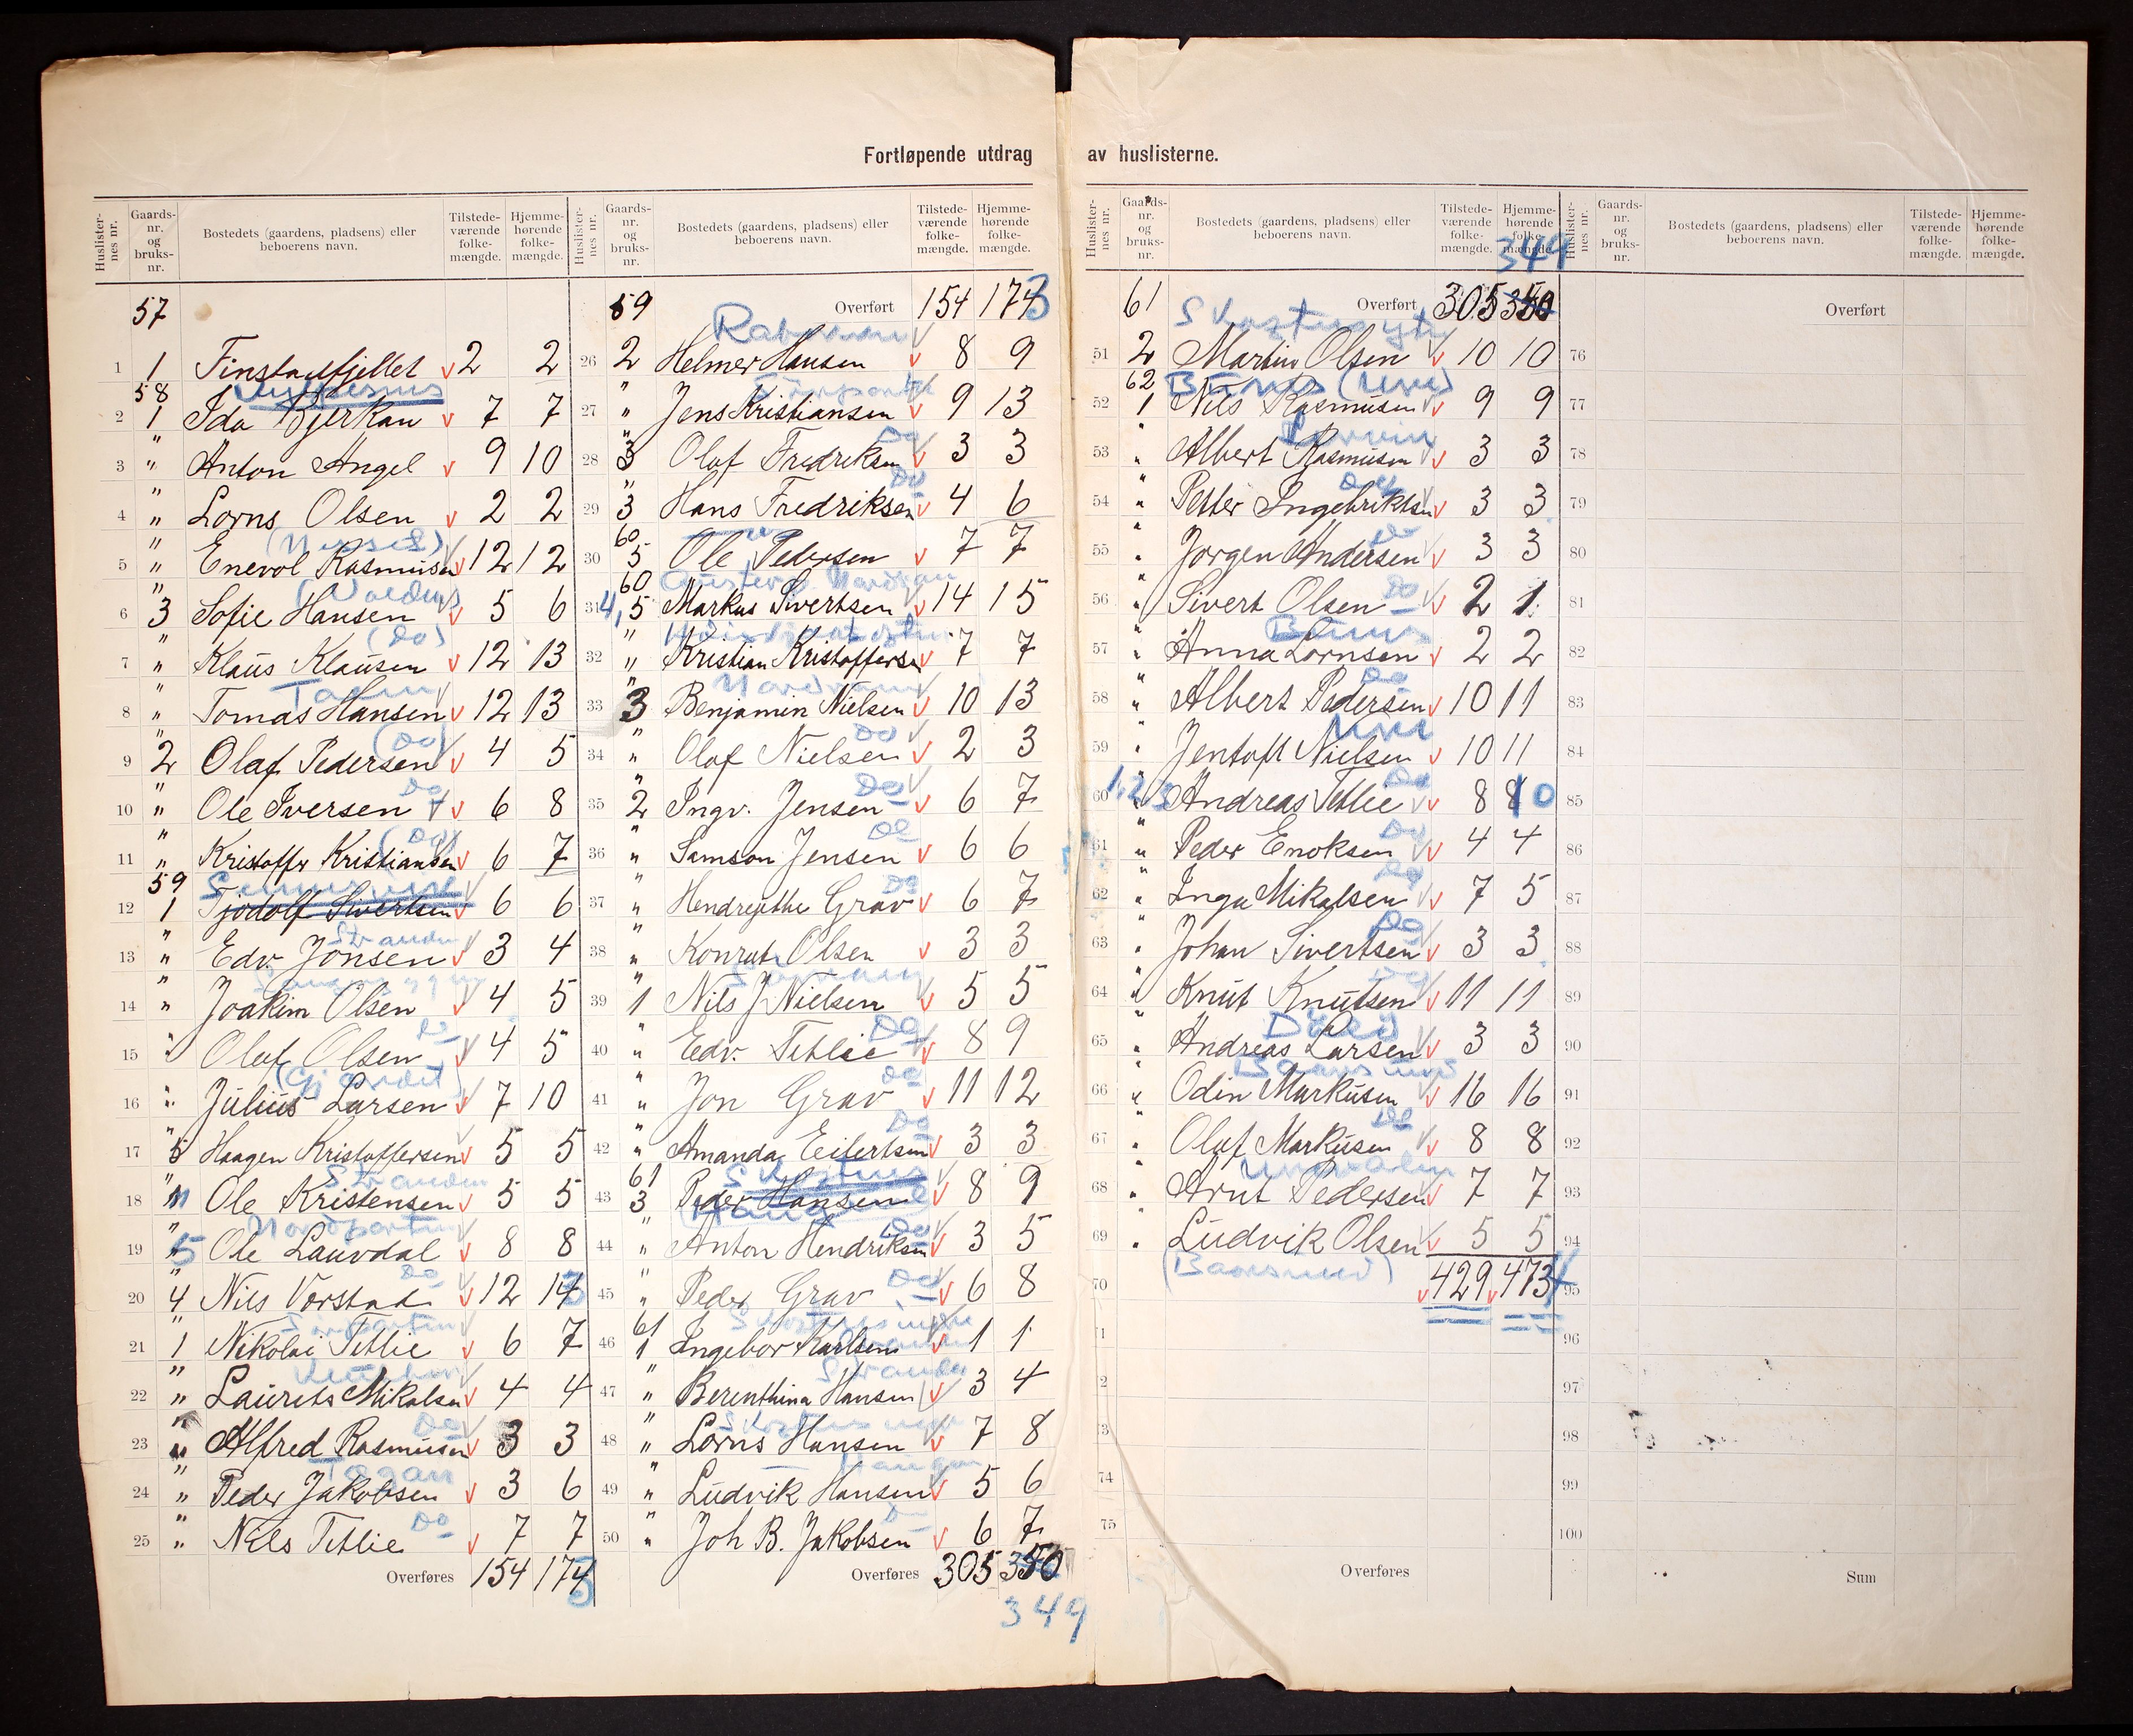 Fortløpende utdrag av huslisterne.
Huslister-nes nr. Gaards-nr. og bruks-nr. Bostedets (gaardens, pladsens) eller beboerens navn. Tilstede-værende folke-mængde. Hjemme-hørende folke-mængde.
57
1 1 Finstadfjellet 2 2
58
2 1 Ida Bjerkan 7 7
3 " Anton Angel 9 10
4 " Lorns Olsen 2 2
5 " Enevol Rasmusen 12 12
6 3 Sofie Hansen 5 6
(Do)
7 " Klaus Klausen 12 13
8 " Tomas Hansen 12 13
(Do)
9 2 Olaf Pedersen 4 5
Do
10 " Ole Iversen 6 8
(Do)
11 " Kristoffer Kristiansen 6 7
59
12 1 Tjodolf Sivertsen 6 6
Stranden
13 " Edv. Jonsen 3 4
14 " Joakim Olsen 4 5
Do
15 " Olaf Olsen 4 5
(Gjærdet)
16 " Julius Larsen 7 10
17 5 Haagen Kristoffersen 5 5
Stranden
18 11 Ole Kristensen 5 5
Nordparten
19 5 Ole Lauvdal 8 8
Do
20 4 Nils Vorstad 12 14 3
21 1 Nikolai Tetlie 6 7
22 " Laurits Mikalsen 4 4
Do
23 " Alfred Rasmusen 3 3
24 " Peder Jakobsen 3 6
Do
25 " Nils Tetlie 7 7
Overføres 154 174 3
Huslister-nes nr. Gaards-nr. og bruks-nr. Bostedets (gaardens, pladsens) eller beboerens navn. Tilstede-værende folke-mængde. Hjemme-hørende folke-mængde.
59 Overført 154 174 3
26 2 Helmer Hansen 8 9
27 " Jens Kristiansen 9 13
Do
28 3 Olaf Fredriksen 3 3
Do
29 3 Hans Fredriksen 4 6
60
30 5 Ole Pedersen 7 7
60
31 4,5 Markus Sivertsen 14 15
32 " Kristian Kristoffersen 7 7
33 3 Benjamin Nielsen 10 13
Do
34 " Olaf Nielsen 2 3
Do
35 2 Ingv. Jensen 6 7
Do
36 " Samson Jensen 6 6
Do
37 " Hendrejethe Grav 6 7
38 " Konrat Olsen 3 3
39 1 Nils J Nielsen 5 5
Do
40 " Edv. Tetlie 8 9
Do
41 " Jon Grav 11 12
Do
42 " Amanda Eilertsen 3 3
61
43 3 Peder Hansen 8 9
Do
44 " Anton Hendriksen 3 5
Do
45 " Peder Grav 6 8
61
46 1 Ingebor Karlsen 1 1
Stranden
47 " Berenthina Hansen 3 4
48 " Lorns Hansen 7 8
49 " Ludvik Hansen 5 6
50 " Joh B. Jakobsen 6 7
Overføres 305 350
349
Huslister-nes nr. Gaards-nr. og bruks-nr. Bostedets (gaardens, pladsens) eller beboerens navn. Tilstede-værende folke-mængde. Hjemme-hørende folke-mængde.
349
61 Overført 305 350
51 2 Martin Olsen 10 10
62
52 1 Nils Rasmusen 9 9
53 " Albert Rasmusen 3 3
54 " Petter Ingebriktsen 3 3
55 " Jorgen Andersen 3 3
Do
56 " Sivert Olsen 2 1
57 " Anna Lornsen 2 2
Do
58 " Albert Pedersen 10 11
59 " Jentoft Nielsen 10 11
Do
60 1,2,3 Andreas Tetlie 8 8 10
Do
61 " Peder Enoksen 4 4
Do
62 " Inga Mikalsen 7 5
Do
63 " Johan Sivertsen 3 3
Do
64 " Knut Knutsen 11 11
65 " Andreas Larsen 3 3
66 " Odin Markusen 16 16
Do
67 " Olaf Markusen 8 8
68 " Arnt Pedersen 7 7
69 " Ludvik Olsen 5 5
70 429 473
71
72
73
74
75
Overføres
Huslister-nes nr. Gaards-nr. og bruks-nr. Bostedets (gaardens, pladsens) eller beboerens navn. Tilstede-værende folke-mængde. Hjemme-hørende folke-mængde.
Overført
76
77
78
79
80
81
82
83
84
85
86
87
88
89
90
91
92
93
94
95
96
97
98
99
100
Sum